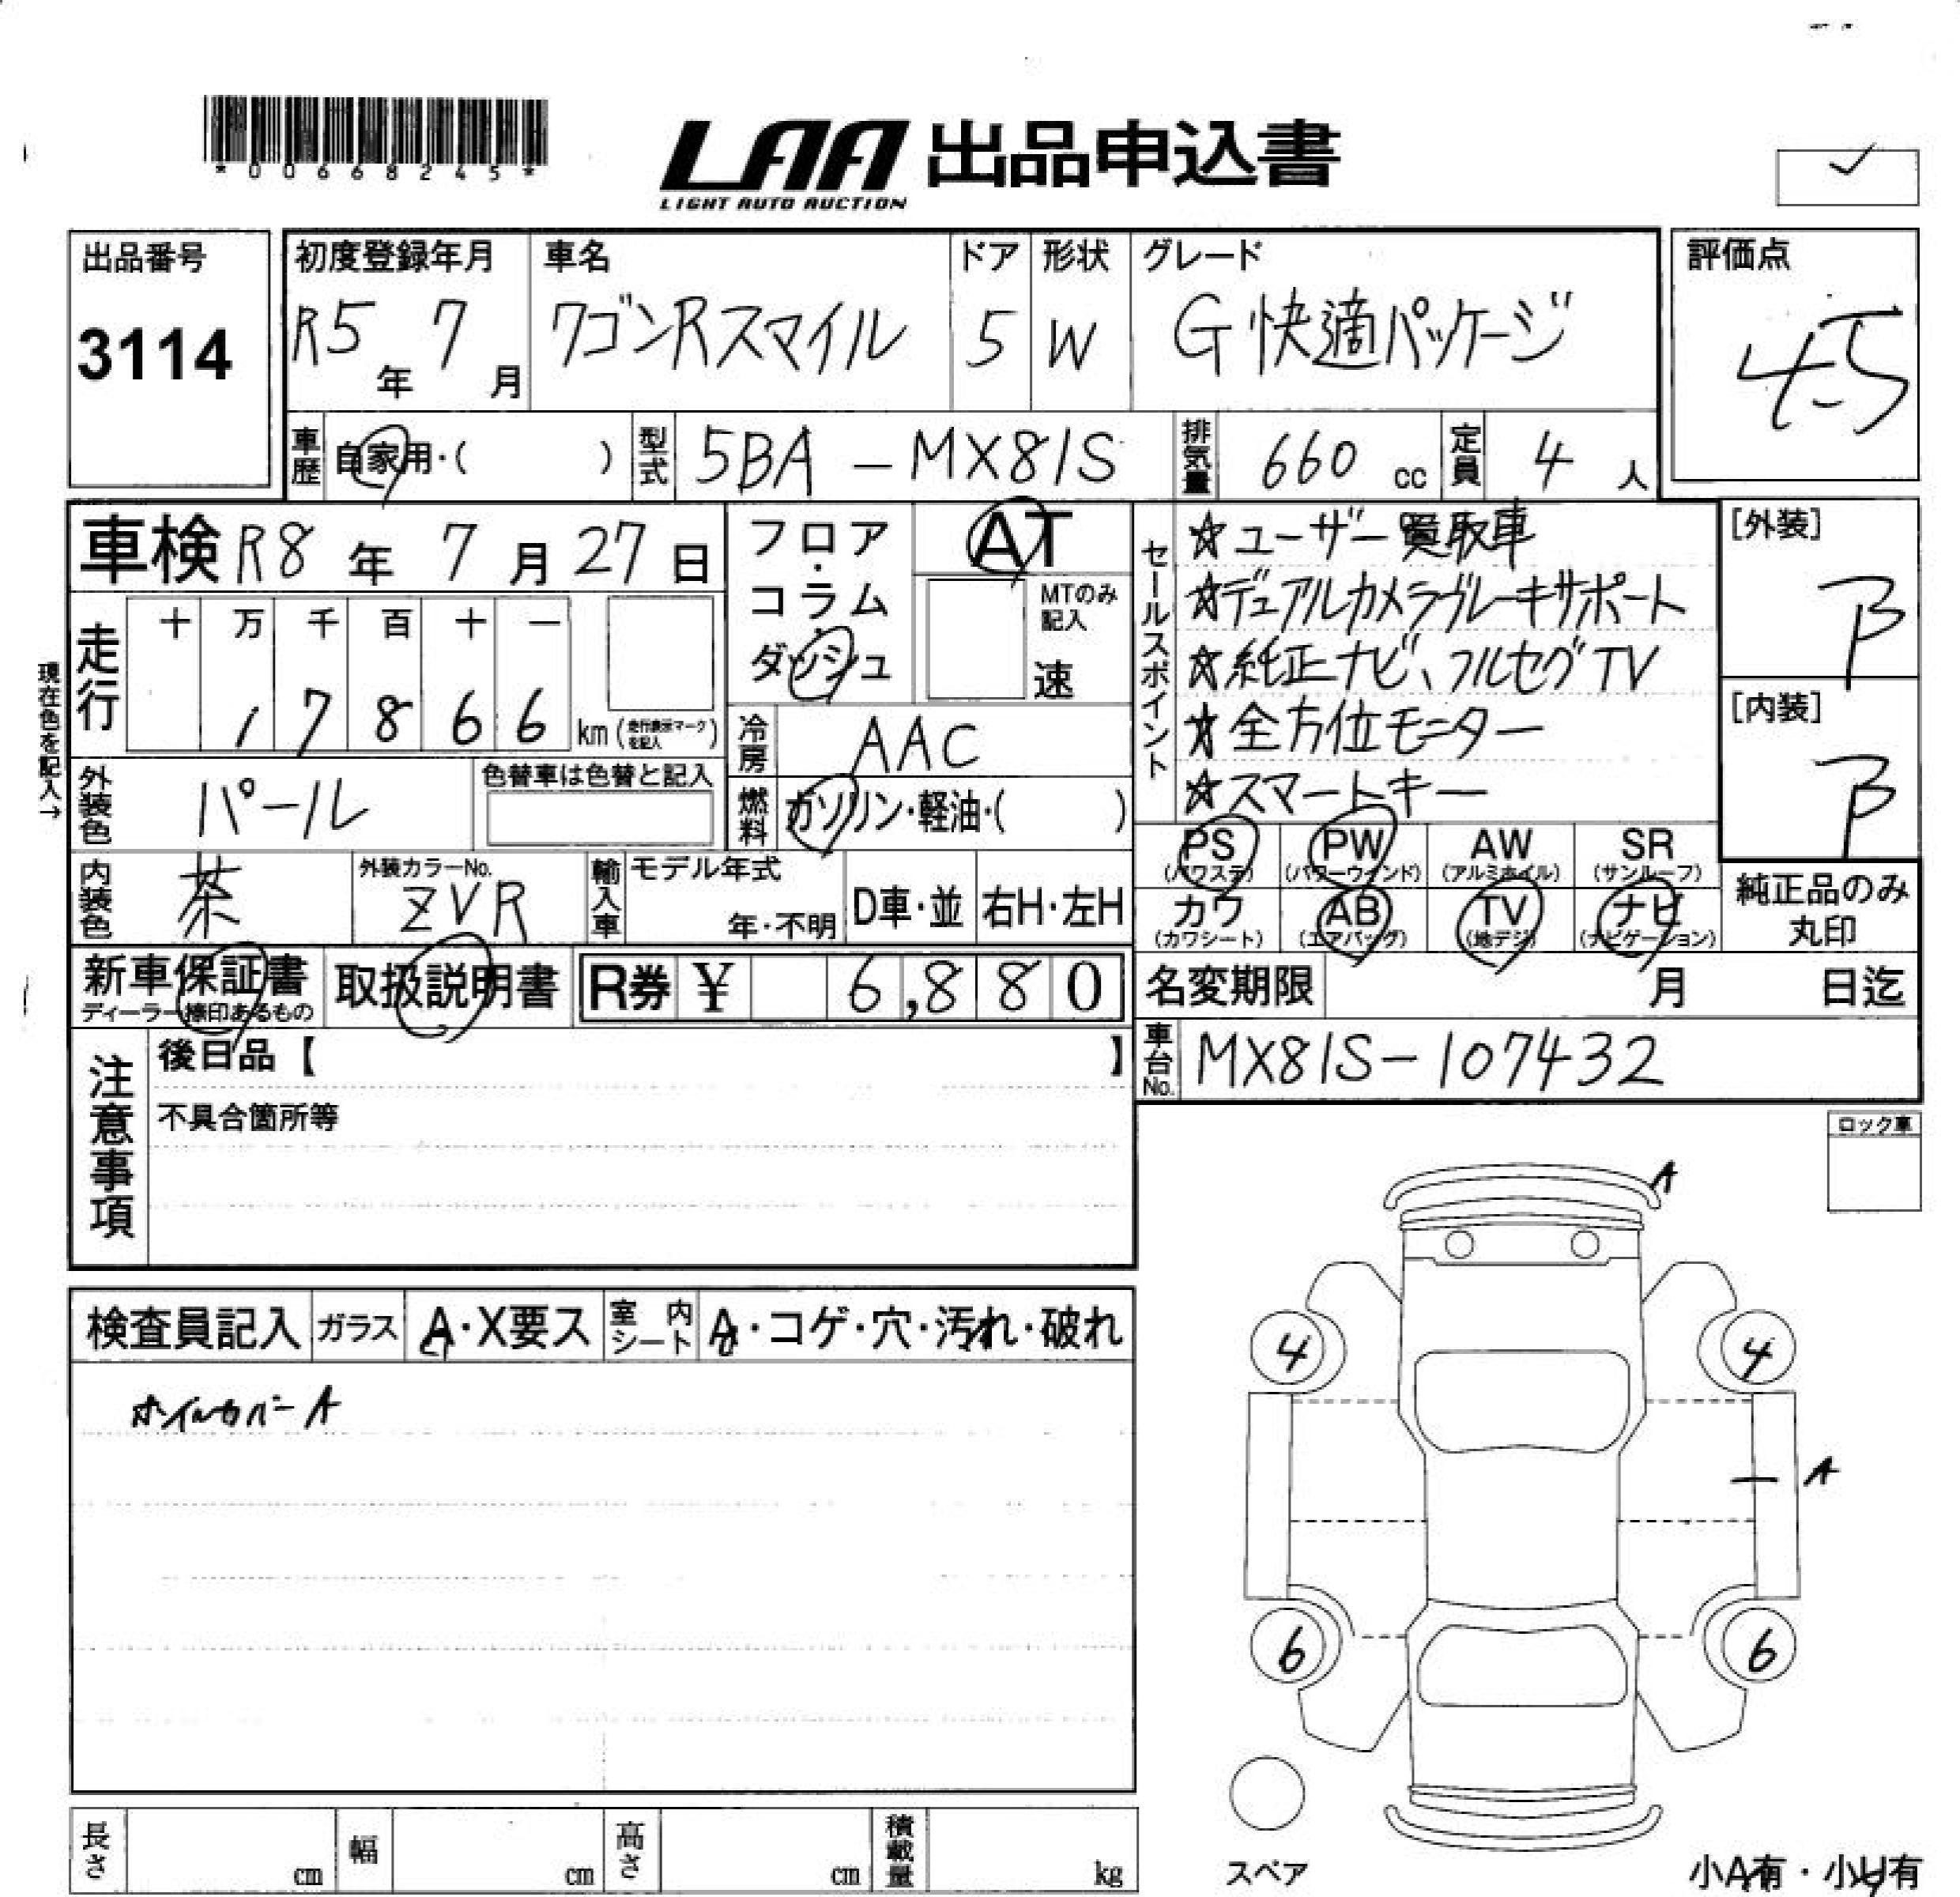 *00668245*
LAA 出品申込書
LIGHT AUTO AUCTION
出品番号
3114
初度登録年月
R5年 7月
車名
ワゴンRスマイル
ドア
5
形状
W
グレード
G 快適パッケージ
評価点
4.5
車歴 自家用・( )
型式 5BA-MX81S
排気量 660 cc
定員 4 人
車検 R8年 7月 27日
フロア・コラム・ダッシュ
AT
MTのみ記入
速
セールスポイント
☆ユーザー買取車
☆デュアルカメラブレーキサポート
☆純正ナビ、フルセグTV
☆全方位モニター
☆スマートキー
[外装]
B
[内装]
B
現在色を記入→
走行
十 万 千 百 十 一
1 7 8 6 6 km (走行表示マークを記入)
冷房 AAC
燃料 ガソリン・軽油・( )
外装色 パール
色替車は色替と記入
内装色 茶
外装カラーNo.
ZVR
輸入車
モデル年式
年・不明
D車・並
右H・左H
PS (パワステ)
PW (パワーウインド)
AW (アルミホイル)
SR (サンルーフ)
カワ (カワシート)
AB (エアバッグ)
TV (地デジ)
ナビ (ナビゲーション)
純正品のみ丸印
新車保証書
ディーラー捺印あるもの
取扱説明書
R券 ¥ 6,880
名変期限 月 日迄
車台No. MX81S-107432
注意事項
後日品【 】
不具合箇所等
ロック車
検査員記入
ガラス A・X要ス
室内シート A・コゲ・穴・汚れ・破れ
ホイルカバーA
A
4 4
A
6 6
スペア
長さ cm
幅 cm
高さ cm
積載量 kg
小A有・小U有